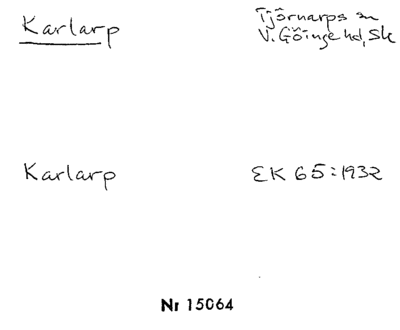 Karlarp
Tjörnarps sn
V. Göinge hd, Sk
Karlarp
EK 65:1932
Nr 15064